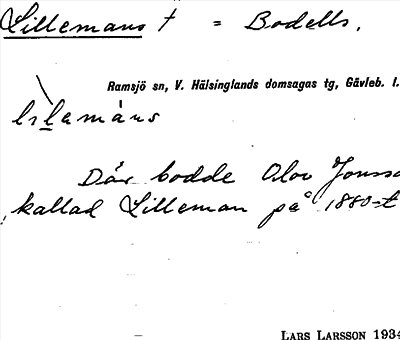 Lillemans † = Bodells.
Ramsjö sn, V. Hälsinglands domsagas tg, Gävleb. l.
lìlemáns
Där bodde Olov Jonsso
kallad Lilleman på 1880-t
LARS LARSSON 1934